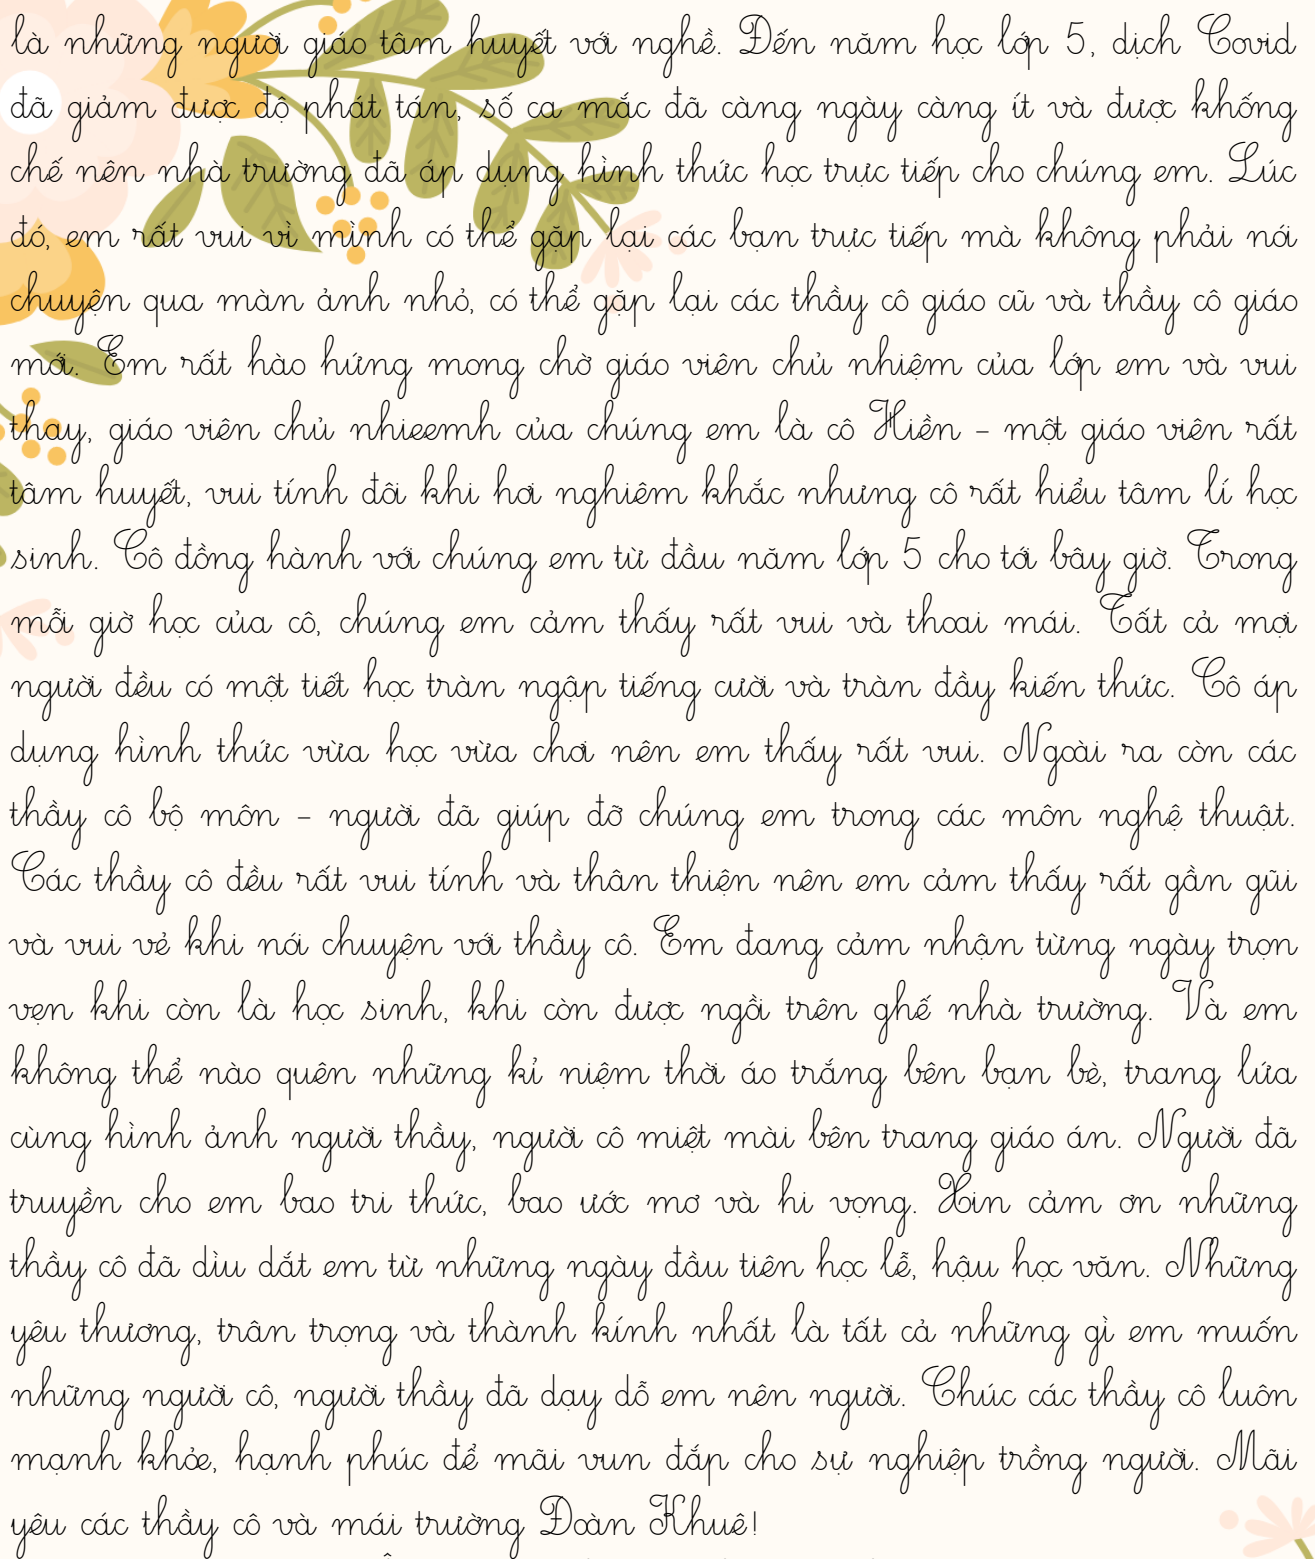 là những người giáo tâm huyết với nghề. Đến năm học lớp 5, dịch Covid
đã giảm được độ phát tán, số ca mắc đã càng ngày càng ít và được khống
chế nên nhà trường đã áp dụng hình thức học trực tiếp cho chúng em. Lúc
đó, em rất vui vì mình có thể gặp lại các bạn trực tiếp mà không phải nói
chuyện qua màn ảnh nhỏ, có thể gặp lại các thầy cô giáo cũ và thầy cô giáo
mới. Em rất hào hứng mong chờ giáo viên chủ nhiệm của lớp em và vui
thay, giáo viên chủ nhieemh của chúng em là cô Hiền – một giáo viên rất
tâm huyết, vui tính đôi khi hơi nghiêm khắc nhưng cô rất hiểu tâm lí học
sinh. Cô đồng hành với chúng em từ đầu năm lớp 5 cho tới bây giờ. Trong
mỗi giờ học của cô, chúng em cảm thấy rất vui và thoai mái. Tất cả mọi
người đều có một tiết học tràn ngập tiếng cười và tràn đầy kiến thức. Cô áp
dụng hình thức vừa học vừa chơi nên em thấy rất vui. Ngoài ra còn các
thầy cô bộ môn – người đã giúp đỡ chúng em trong các môn nghệ thuật.
Các thầy cô đều rất vui tính và thân thiện nên em cảm thấy rất gần gũi
và vui vẻ khi nói chuyện với thầy cô. Em đang cảm nhận từng ngày trọn
vẹn khi còn là học sinh, khi còn được ngồi trên ghế nhà trường. Và em
không thể nào quên những kỉ niệm thời áo trắng bên bạn bè, trang lứa
cùng hình ảnh người thầy, người cô miệt mài bên trang giáo án. Người đã
truyền cho em bao tri thức, bao ước mơ và hi vọng. Xin cảm ơn những
thầy cô đã dìu dắt em từ những ngày đầu tiên học lễ, hậu học văn. Những
yêu thương, trân trọng và thành kính nhất là tất cả những gì em muốn
những người cô, người thầy đã dạy dỗ em nên người. Chúc các thầy cô luôn
mạnh khỏe, hạnh phúc để mãi vun đắp cho sự nghiệp trồng người. Mãi
yêu các thầy cô và mái trường Đoàn Khuê!